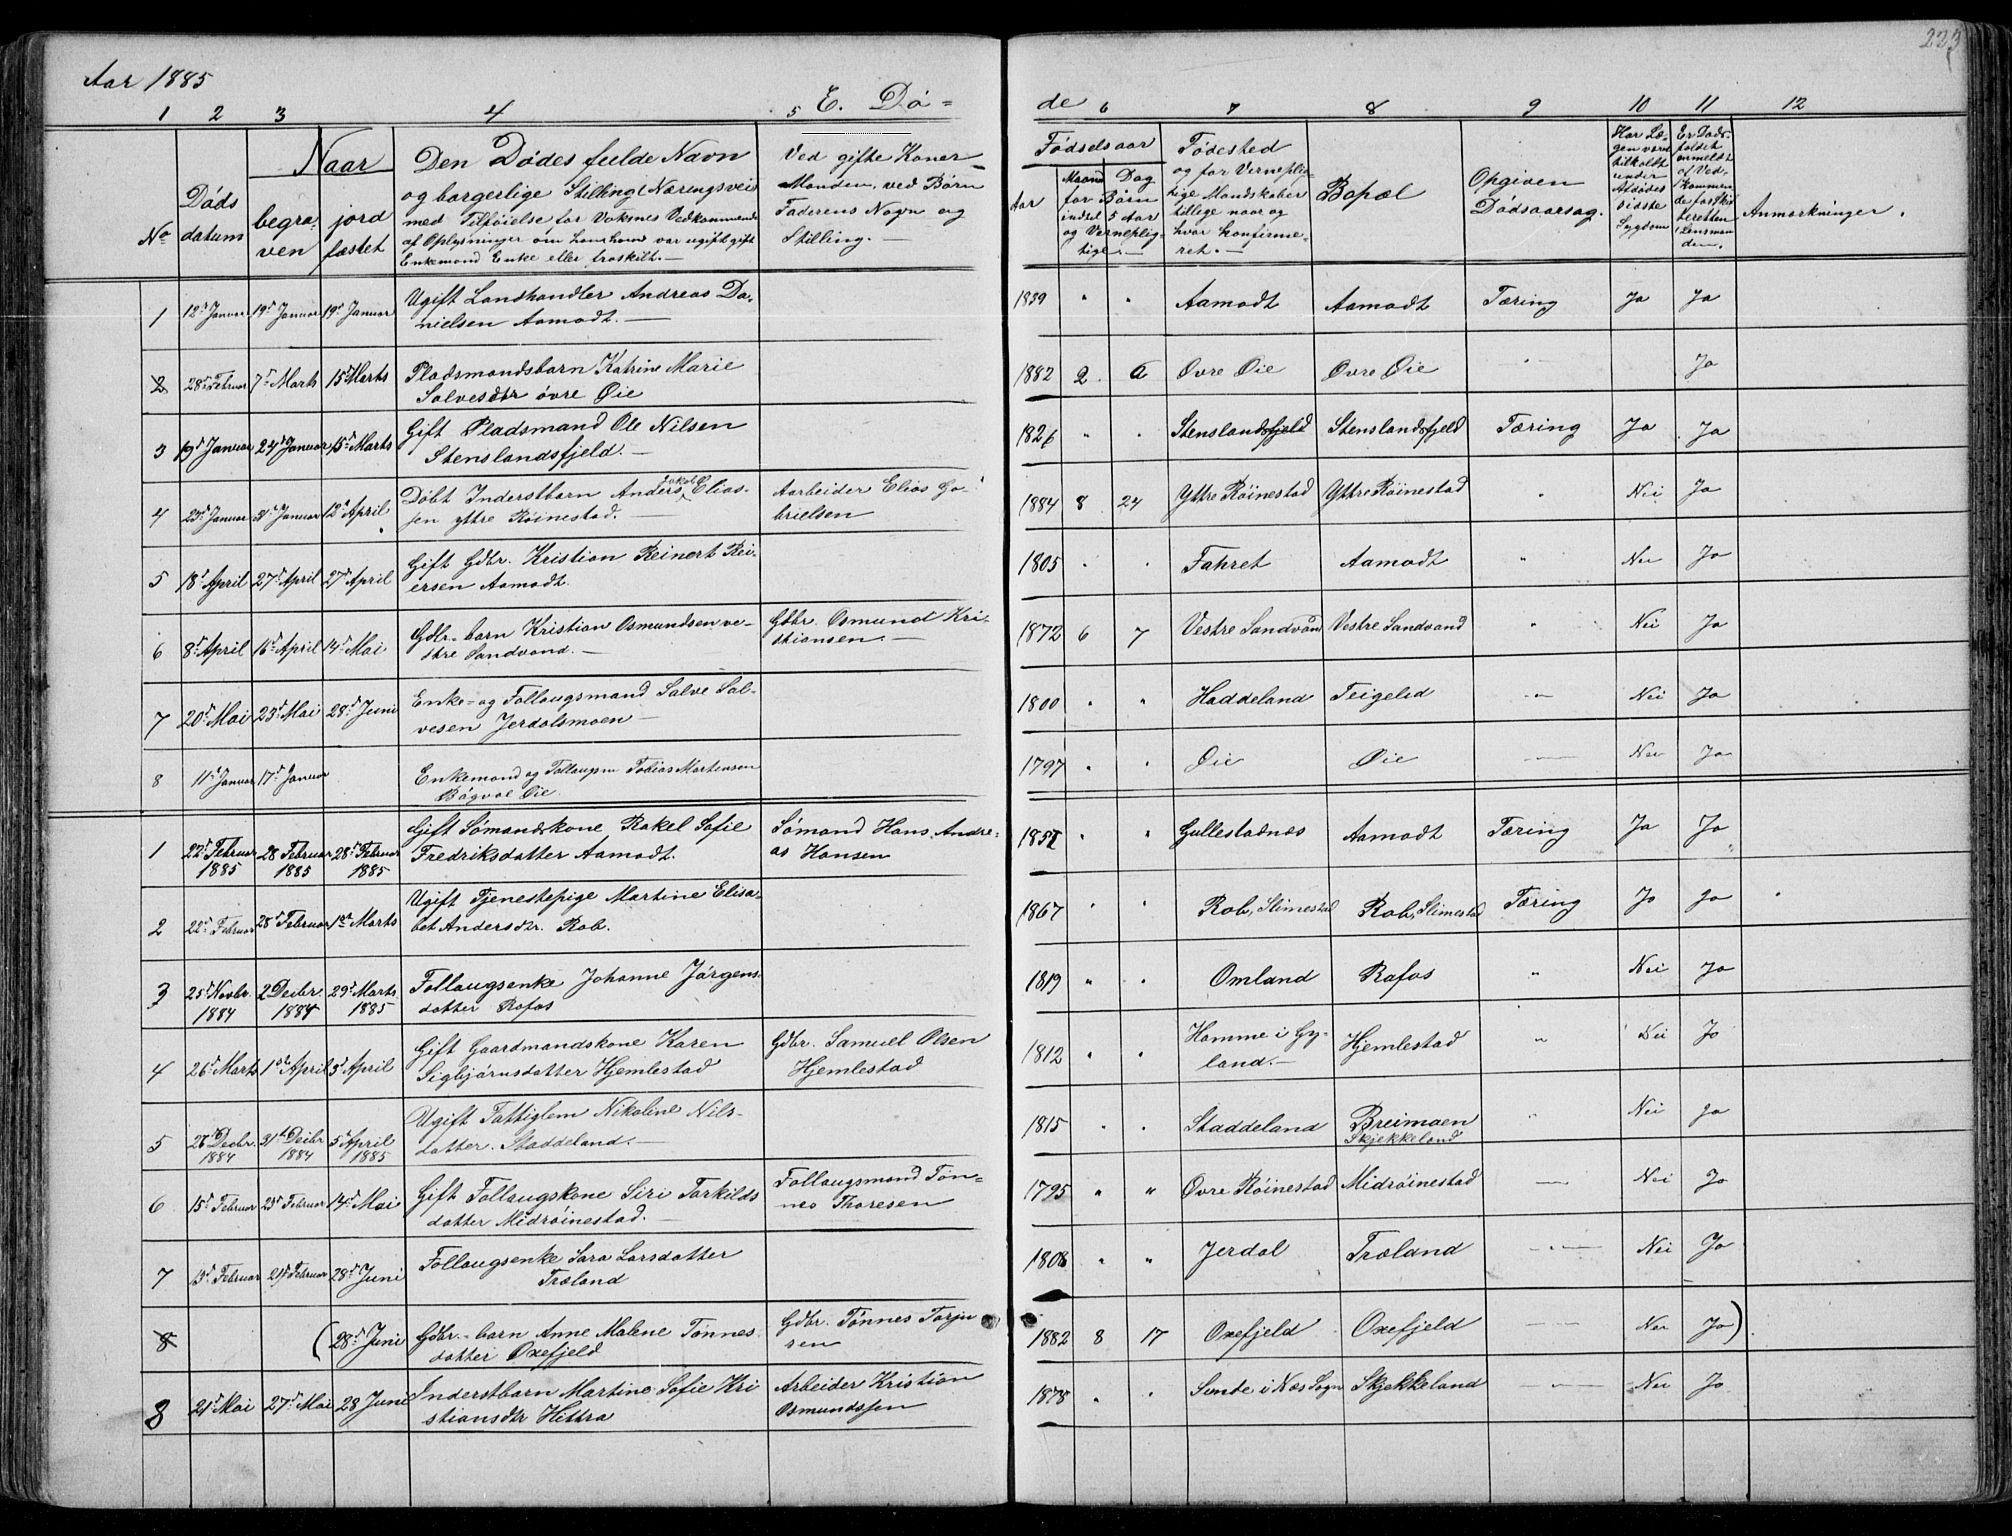 Aar 1885
E. Dø=
de
223
1 2 3 4 5
6 7 8 9 10 11 12
No
Døds
datum
Naar
begra-
ven
jord
fæstet
Den Dødes fulde Navn
og borgerlige Stilling (Næringsvei
med Tilføielse for Voksnes Vedkommende
af Oplysninger om han hun var ugift gift
Enkemand Enke eller fraskilt.—
Ved gifte Koner
Manden, ved Børn
Faderens Navn og
Stilling.—
Fødselsaar
Aar
Maaned Dag
for Børn
indtil 5 Aar
og Verneplig-
tige.—
Fødested
og for Verneplig-
tige Mandskaber
tillige naar og
hvor konfirme-
ret.—
Bopæl
Opgiven
Dødsaarsag.
Har Læ-
gen været
tilkaldt
under
Afdødes
sidste
Sygdom
Er Døds-
faldet
anmeldt
af Ved-
kommen-
de for Skif-
teretten
(Lensman-
den.
Anmærkninger.
1 12te Januar 19de Januar 19de Januar Ugift Landhandler Andreas Da- 1839 " " Aamodt Aamodt Tæring Ja Ja
nielsen Aamodt.—
2 28de Februar 7de Marts 15de Marts Pladsmandsbarn Katrine Marie 1882 2 6 Øvre Øie Øvre Øie " Ja
Salvesdtr øvre Øie
3 19de Januar 24de Januar 15de Marts Gift Pladsmand Ole Nilsen 1826 " " Stenslandsfjeld Stenslandsfjeld Tæring Ja Ja
Stenslandsfjeld.—
4 23de Januar 31te Januar 12te April Døbt Inderstbarn Anders Jakob Elias- Aarbeider Elias Ga- 1884 8 24 Yttre Røinestad Yttre Røinestad " Nei Ja
sen yttre Røinestad.— brielsen
5 18de April 27de April 27de April Gift Gdbr. Kristian Reinert Rei- 1805 " " Fahret Aamodt " Nei Ja
ersen Aamodt.
6 8de April 16de April 14de Mai Gdbr-barn Kristian Osmundsen ve- Gdbr. Osmund Kri- 1872 6 7 Vestre Sandvand Vestre Sandvand " Nei Ja
stre Sandvand.— stiansen.—
7 20de Mai 23de Mai 28de Juni Enke- og Føllaugsmand Salve Sal- 1800 " " Haddeland Teigelid —"— Nei Ja
vesen Jerdalsmoen—
8 11te Januar 17de Januar Enkemand og Føllaugsm Tobias Martensen 1797 " " Øie Øie — Nei Ja
Bagvol Øie.
1 22de Februar 28 Februar 28de Februar Gift Sømandskone Rakel Sofie Sømand Hans Andre- 1857 " " Gullestadnæs Aamodt Tæring Ja Ja
1885 1885 1885 Fredriksdatter Aamodt. as Hansen
2 22de Februar 28de Februar 1ste Marts Ugift Tjenestepige Martine Elisa- 1867 " " Rob, Slimestad Rob, Slimestad Tæring Ja Ja
bet Andersdtr. Rob.
3 25de Novbr. 2 Decbr. 29de Marts Føllaugsenke Johanne Jørgens- 1819 " " Omland Rafos " Nei Ja
1884 1884 1885 datter Rafos
4 26de Marts 1ste April 5te April Gift Gaardmandskone Karen Gdbr. Samuel Olsen 1812 " " Homme i Gy- Hjemlestad " Nei Ja
Sigbjørnsdatter Hjemlestad Hjemlestad land.—
5 26de Decbr. 31te Decbr 5te April Ugift Fattiglem Nikoline Nils- 1815 " " Staddeland Breimoen " Nei Ja
1884 1884 1885 datter. Staddeland.— Skjekkeland
6 15de Februar 23de Februar 14de Mai Gift Føllaugskone Siri Tarkilds Føllaugsmand Tøn- 1795 " " Øvre Røinestad Midrøinestad — Nei Ja
datter Midrøinestad.— nes Thoresen
7 13de Februar 21de Februar 28de Juni Føllaugsenke Sara Larsdatter 1808 " " Jerdal Træland —"— Nei Ja
Træland
8 (28de Juni Gdbr.-barn Anne Malene Tønnes- Gdbr. Tønnes Tarju- 1882 8 17 Oxefjeld Oxefjeld — Nei Ja)
datter Oxefjeld sen
8 21de Mai 27de Mai 28 Juni Inderstbarn Martine Sofie Kri Arbeider Kristian 1878 " " Sunde i Næs Sogn Skjekkeland —"— Nei Ja
stiansdtr Hittra Osmundssen